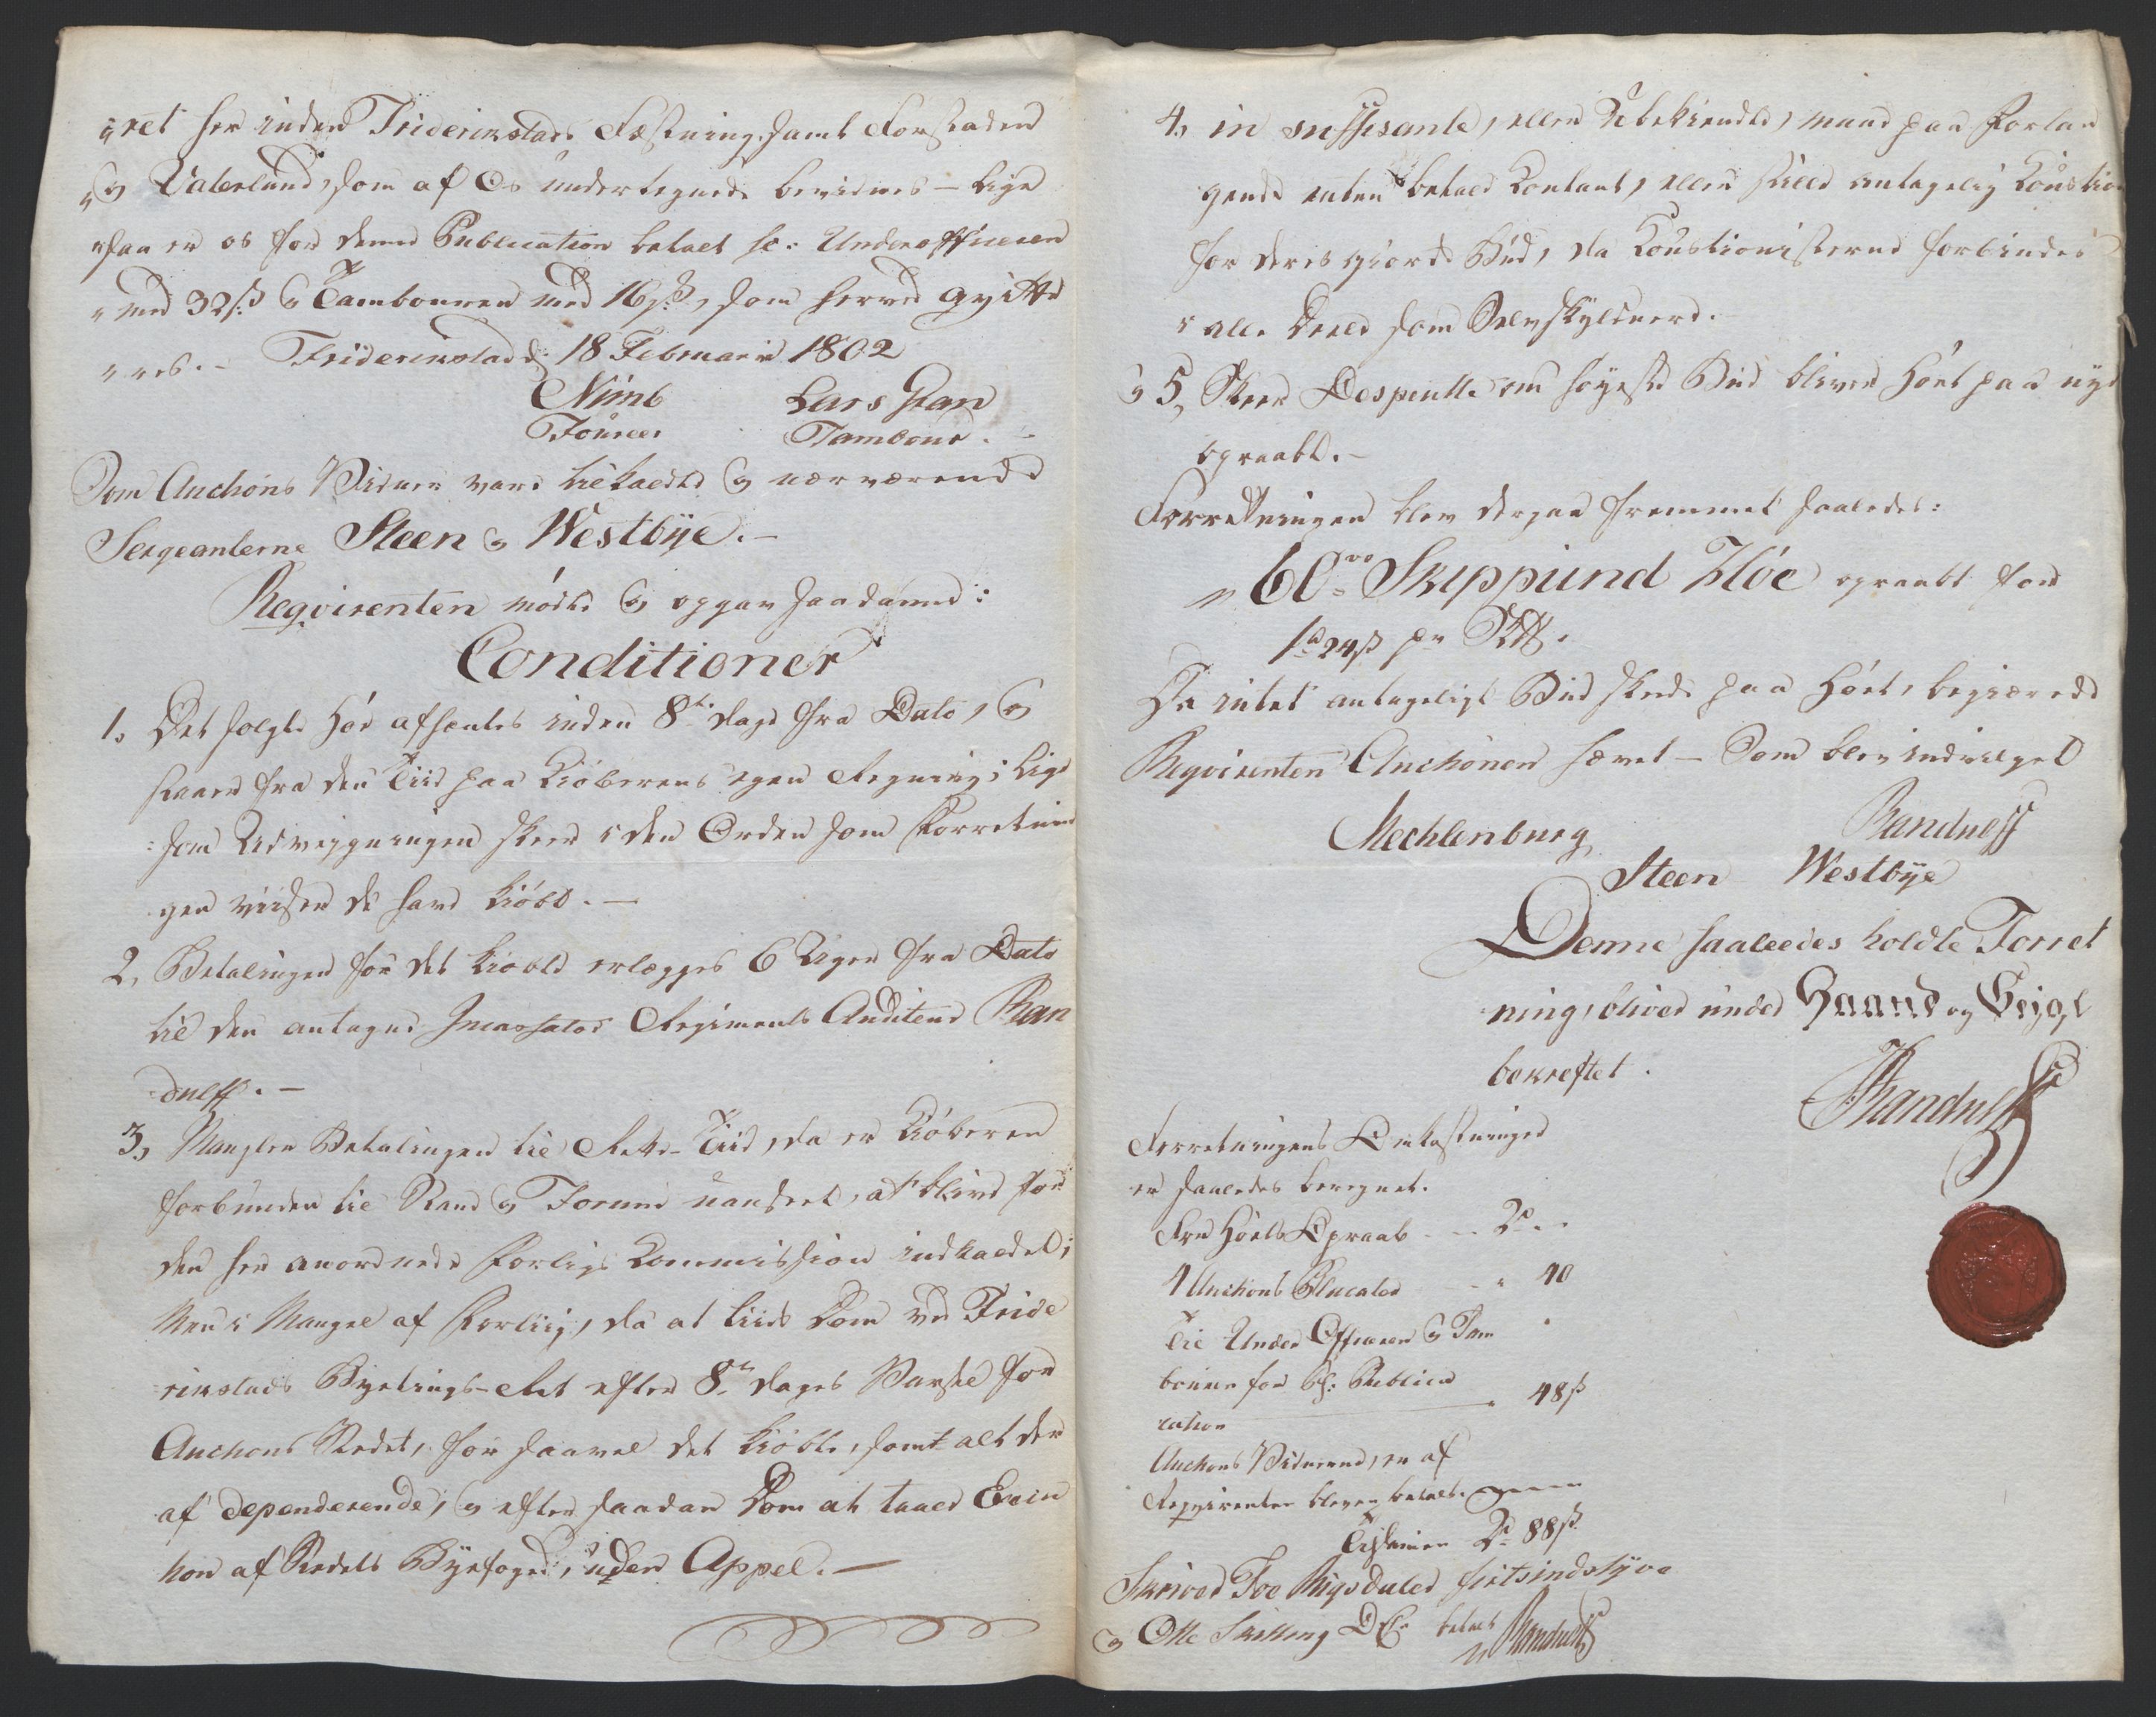 "ret her inden Friderikstads Fæstning, samt Forstaden
"og Vaterland, som af Os undertegnede bevidnes — lige
"saa er os for denne Publication betalt sc: Underofficeren
"med 32 ß og Tambouren med 16 ß, som herved qvitte
"res. — Friderikstad d: 18 Februarii 1802
Nimb Lars
Fourier Tambour. —
Som Auctions Vidner vare tilkaldte og nærværende
Sergeanterne Steen og Westbÿe. —
Reqvirenten mødte og opgav saadanne:
Conditioner
1, Det solgte Høe afhentes inden 8te dage fra Dato, og
staaer fra den Tiid paa Kiøberens egen Regning; lige
som Udveÿgningen skeer i den Orden som Forretnin
gen viiser de have kiøbt. —
2, Betalingen for det kiøbte erlægges 6 Uger fra Dato
til den antagne Incassator Regiments Auditeur Ran
dulff. —
3, Mangler Betalingen til Rette Tiid, da er Kiøberen
forbunden til Rang og Forum uanseet, at blive for
den her anordnede Forligs Commission indkaldet;
Men i Mangel af Forliig, da at liide Dom ved Fride
rikstads Byetings-Ret efter 8te dages Varsel for
Auctions Rettet, for saavel det kiøbte, samt alt der
af dependerende, og efter saadan Dom at taale Execu
tion af Stedets Byefoged, uden Appel. —
4, in suffisante, eller Ubekiendte, maae paa Forlan
gende enten betale Contant, eller stille antagelig Caution
for deres giorde Bud, da Cautionisterne forbindes
i alle Deele som Selvskyldnere.
og 5, Skeer Despeutte om høyeste Bud bliver Høet paa nye
opraabt. —
Forretningen blev derpaa fremmet saaledes:
" 60ve Skippund Høe opraabt for
1 rd 24 ß pr
Da intet antageligt Bud skede paa Høet, begiærede
Reqvirenten Auctionen hævet — Som blev indvilget
Mechlenburg Randulff
Steen Westbÿe
Denne saaledes holdte Forret
ning, bliver under Haand og Seigl
bekreftet.
Randulff
Forretningens Omkostninger
er saaledes beregnet.
For Høets Opraab - - 2 rd - -
4 Auctions Placater - - " 40
Til Under Officeren og Tam
bouren for Publica
cation " 48 ß
Auctions Vidnerne, er af
Reqvirenten bleven betalt.
Tilsammen 2 rd 88 ß
Skriver Toe Rigsdaler fiirsindstÿve
og Otte Skilling D C: betalt
Randulff